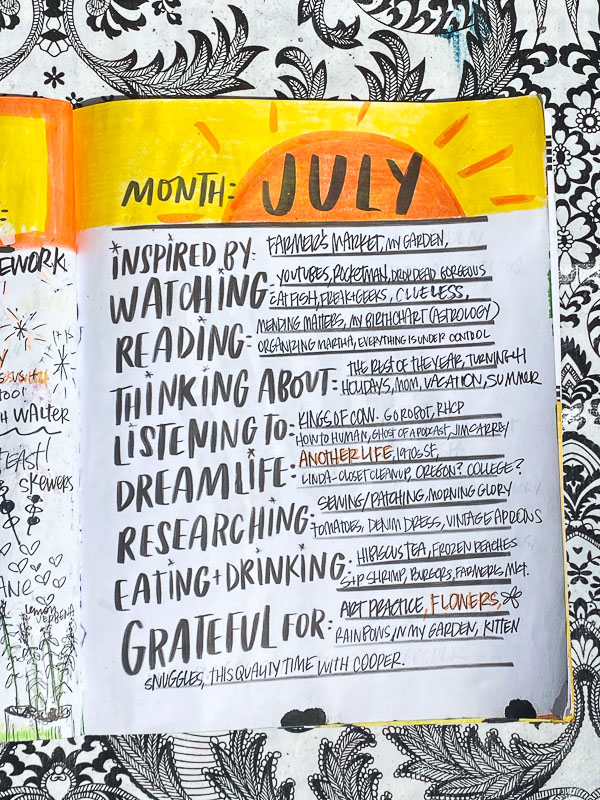 EWORK
WALTER
SKEWERS
ANE
lemon
VERBENA
MONTH: JULY
INSPIRED BY: FARMER'S MARKET, MY GARDEN,
WATCHING: YOUTUBES, ROCKETMAN, DROP DEAD GORGEOUS
CATFISH, FREAK+GEEKS, CLUELESS,
READING: MENDING MATTERS, MY BIRTH CHART (ASTROLOGY)
ORGANIZING MARTHA, EVERYTHING IS UNDER CONTROL
THINKING ABOUT: THE REST OF THE YEAR, TURNING 41
HOLIDAYS, MOM, VACATION, SUMMER
LISTENING TO: KINGS OF CONV. GO ROBOT, RHCP
HOW TO HUMAN, GHOST OF A PODCAST, JIM CARREY
DREAM LIFE: ANOTHER LIFE,
LINDA - CLOSET CLEANUP, OREGON? COLLEGE?
RESEARCHING: SEWING/PATCHING, MORNING GLORY
TOMATOES, DENIM DRESS, VINTAGE APRONS
EATING + DRINKING: HIBISCUS TEA, FROZEN PEACHES
S+P SHRIMP, BURGERS, FARMERS, MKT.
GRATEFUL FOR: ART PRACTICE, FLOWERS,
RAINBOWS, IN MY GARDEN, KITTEN
SNUGGLES, THIS QUALITY TIME WITH COOPER.